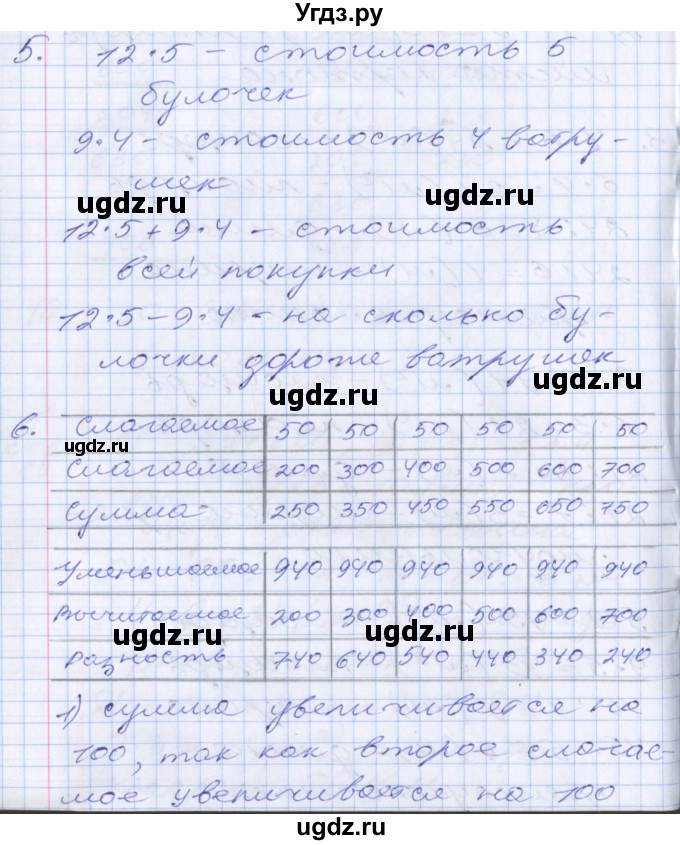 Угдз.ру
5. 12·5 – стоимость 5
булочек
9·4 – стоимость 4 ватру-
шек
ugdz.ru ugdz.ru
12·5 + 9·4 – стоимость
всей покупки
ugdz.ru
12·5 – 9·4 – на сколько бу-
лочки дороже ватрушек
ugdz.ru ugdz.ru
6. Слагаемое 50 50 50 50 50 50
ugdz.ru
Слагаемое 200 300 400 500 600 700
Сумма 250 350 450 550 650 750
ugdz.ru
Уменьшаемое 940 940 940 940 940 940
Вычитаемое 200 300 400 500 600 700
ugdz.ru ugdz.ru
Разность 740 640 540 440 340 240
1) сумма увеличивается на
ugdz.ru
100, так как второе слагае-
мое увеличивается на 100
ugdz.ru